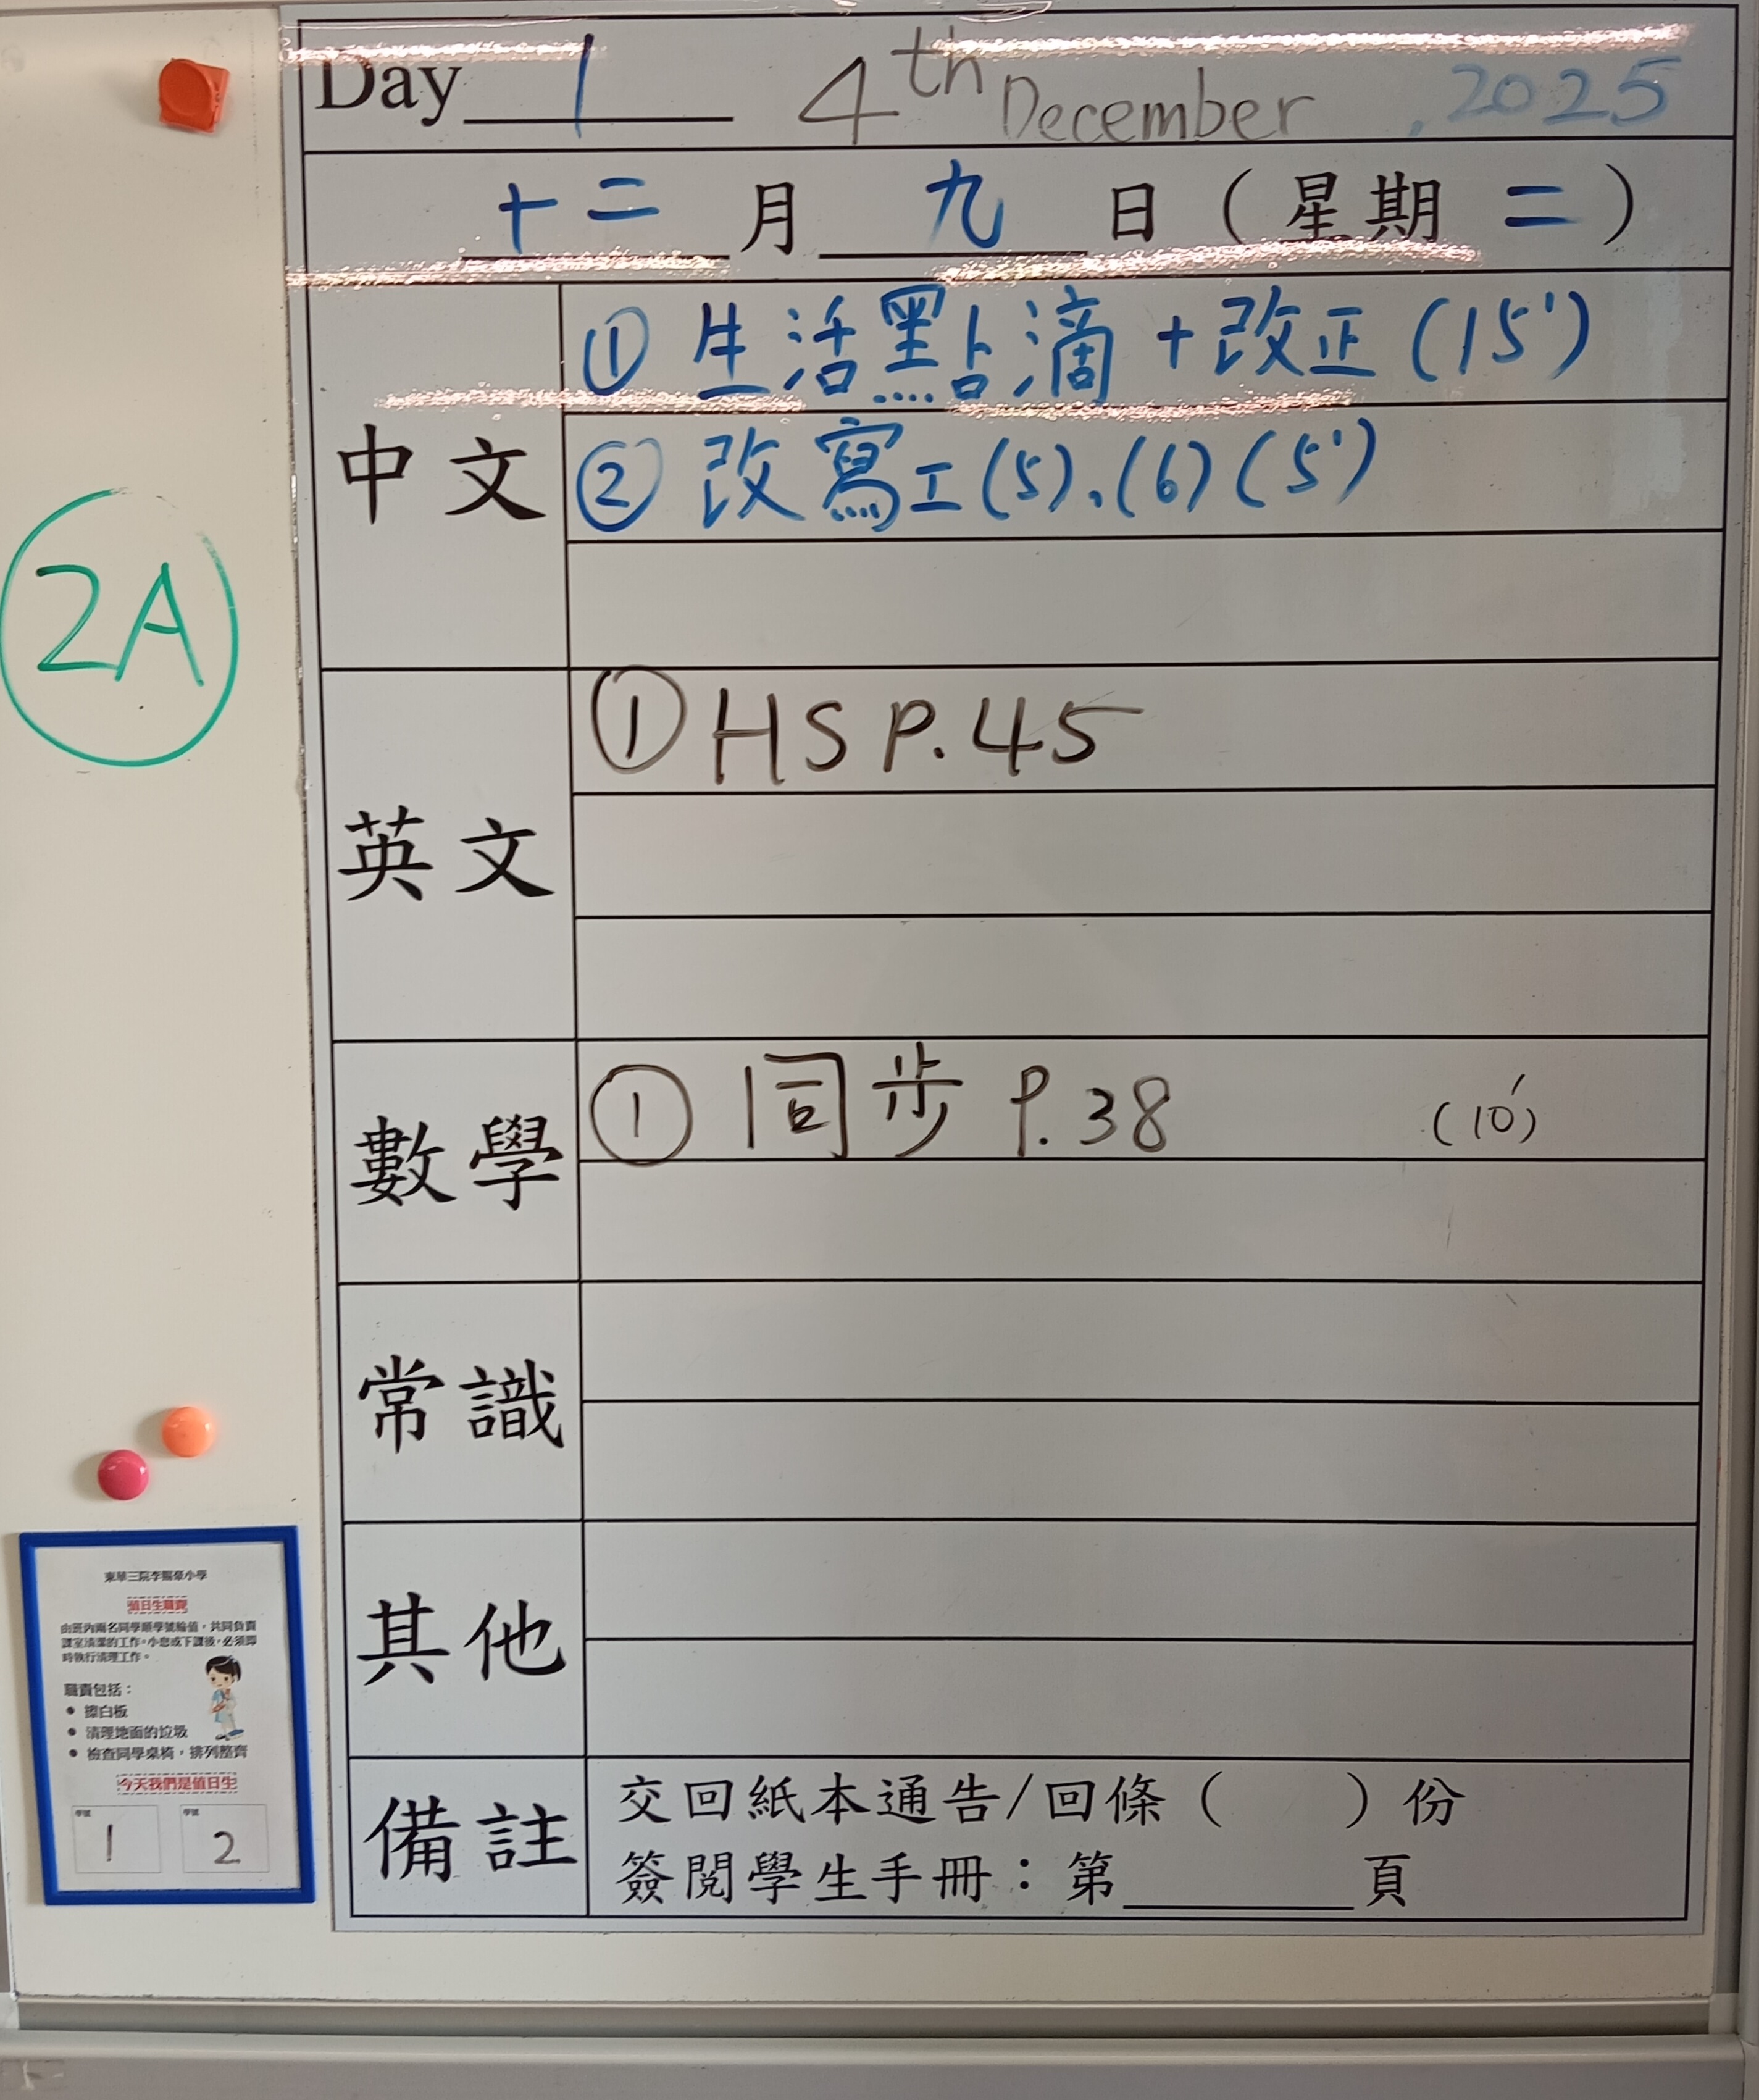 Day 1 4th December , 2025
十二 月 九 日 ( 星期 二 )
中文
① 生活點滴 + 改正 (15')
② 改寫工 (5)、(6) (5')
2A
英文
① HS P.45
數學
① 同步 P.38 (10')
常識
其他
備註
交回紙本通告/回條 ( ) 份
簽閱學生手冊：第 頁
東華三院李賜豪小學
值日生職責
由班內兩名同學順學號輪值，共同負責
課室清潔的工作。小息或下課後，必須即
時執行清理工作。
職責包括：
• 擦白板
• 清理地面的垃圾
• 檢查同學桌椅，排列整齊
今天我們是值日生
學號 學號
1 2